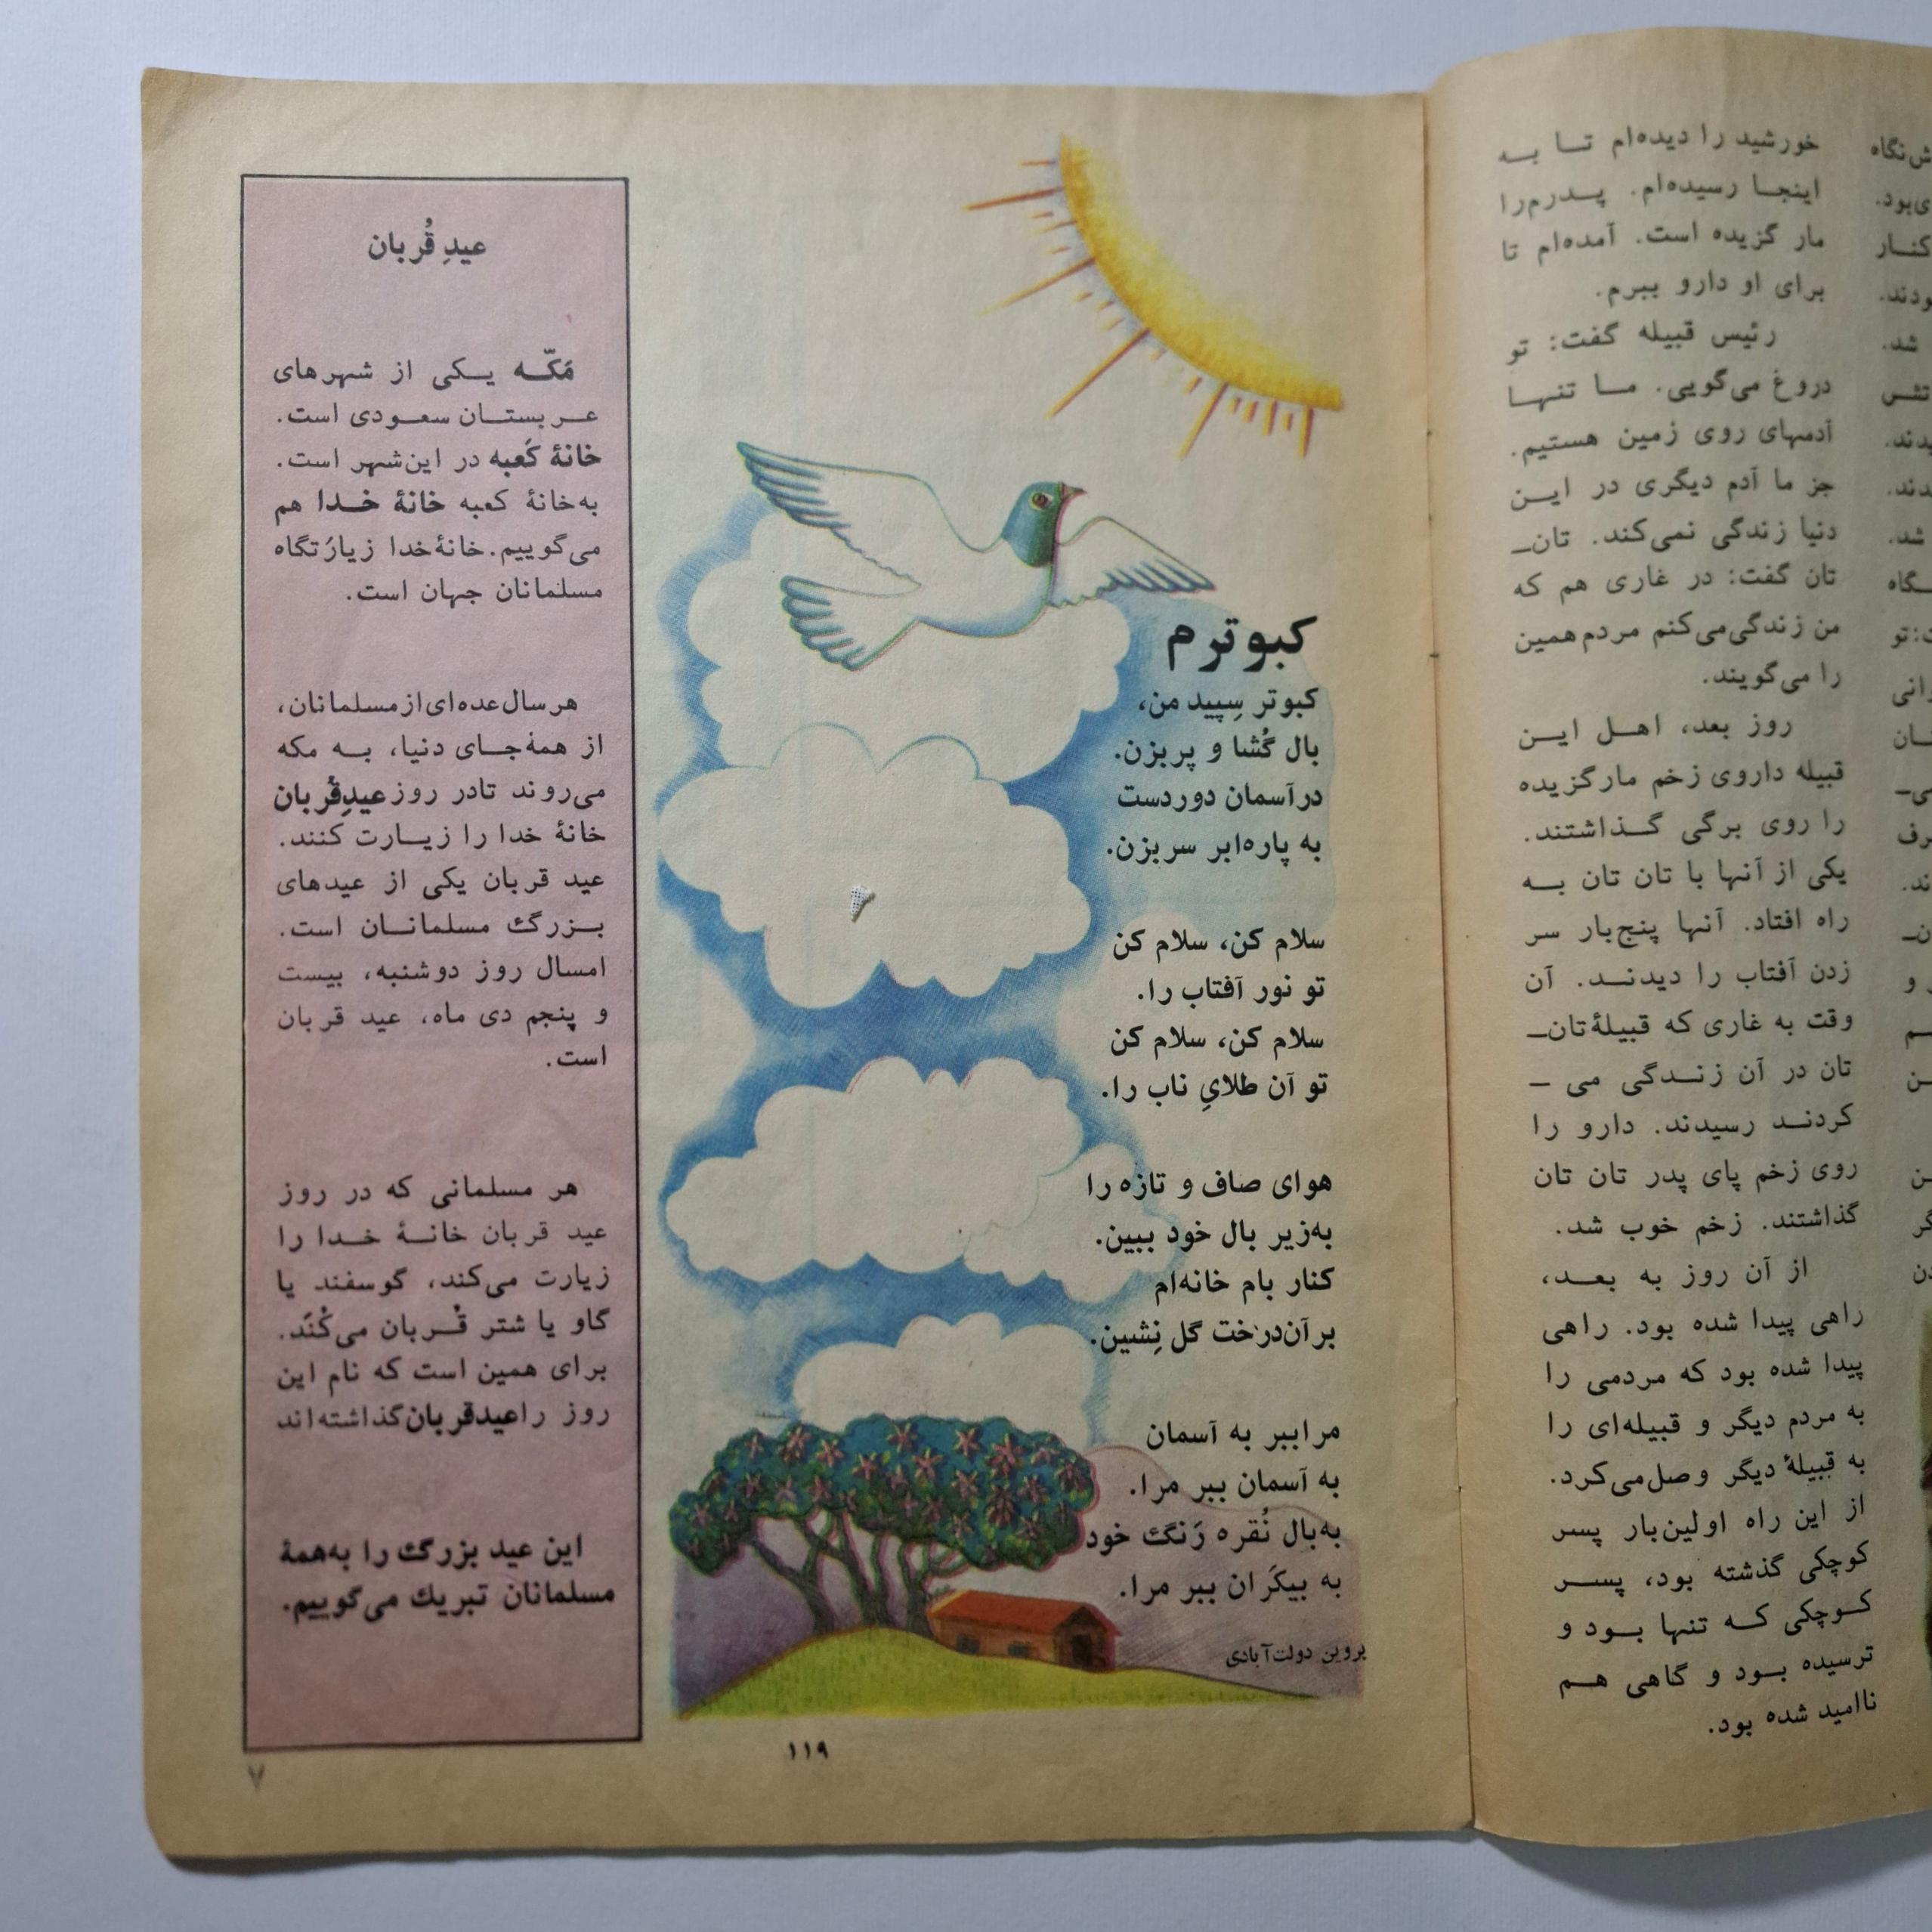 خورشید را دیده‌ام تا به
اینجا رسیده‌ام. پدرم را
مار گزیده است. آمده‌ام تا
برای او دارو ببرم.
رئیس قبیله گفت: تو
دروغ می‌گویی. ما تنها
آدمهای روی زمین هستیم.
جز ما آدم دیگری در این
دنیا زندگی نمی‌کند. تان‌ـ
تان گفت: در غاری هم که
من زندگی می‌کنم مردم همین
را می‌گویند.
روز بعد، اهل این
قبیله داروی زخم مارگزیده
را روی برگی گذاشتند.
یکی از آنها با تان تان به
راه افتاد. آنها پنج‌بار سر
زدن آفتاب را دیدند. آن
وقت به غاری که قبیلهٔ تان‌ـ
تان در آن زندگی می ـ
کردند رسیدند. دارو را
روی زخم پای پدر تان تان
گذاشتند. زخم خوب شد.
از آن روز به بعد،
راهی پیدا شده بود. راهی
پیدا شده بود که مردمی را
به مردم دیگر و قبیله‌ای را
به قبیلهٔ دیگر وصل می‌کرد.
از این راه اولین‌بار پسر
کوچکی گذشته بود، پسر
کوچکی که تنها بود و
ترسیده بود و گاهی هم
ناامید شده بود.
کبوترم
کبوتر سِپید من،
بال گُشا و پر بزن.
در آسمان دوردست
به پاره‌ابر سر بزن.
سلام کن، سلام کن
تو نور آفتاب را.
سلام کن، سلام کن
تو آن طلایِ ناب را.
هوای صاف و تازه را
به‌زیر بال خود ببین.
کنار بام خانه‌ام
بر آن‌درخت گل نِشین.
مرا ببر به آسمان
به آسمان ببر مرا.
به‌بال نُقره رَنگ خود
به بیکَران ببر مرا.
پروین دولت‌آبادی
عیدِ قُربان
مَکّه یکی از شهرهای
عربستان سعودی است.
خانهٔ کَعبه در این‌شهر است.
به‌خانهٔ کعبه خانهٔ خدا هم
می‌گوییم. خانهٔ‌خدا زیارَتگاه
مسلمانان جهان است.
هرسال عده‌ای از مسلمانان،
از همهٔ‌جای دنیا، به مکه
می‌روند تا در روز عیدِقُربان
خانهٔ خدا را زیارت کنند.
عید قربان یکی از عیدهای
بزرگ مسلمانان است.
امسال روز دوشنبه، بیست
و پنجم دی ماه، عید قربان
است.
هر مسلمانی که در روز
عید قربان خانهٔ خدا را
زیارت می‌کند، گوسفند یا
گاو یا شتر قُربان می‌کُنَد.
برای همین است که نام این
روز را عیدقربان گذاشته‌اند
این عید بزرگ را به‌همهٔ
مسلمانان تبریک می‌گوییم.
۱۱۹
۷